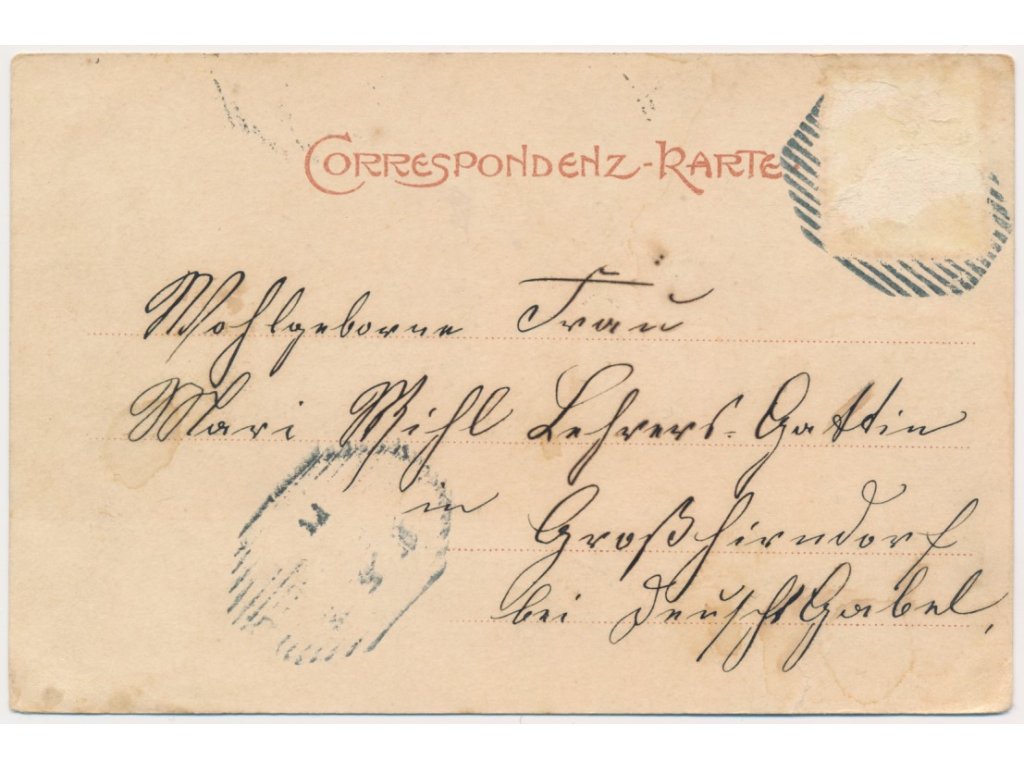 CORRESPONDENZ-KARTE
Wohlgeborne Frau
Mari Wihl Lehrers-Gattin
in
Großhirndorf
bei Deutsch Gabel,